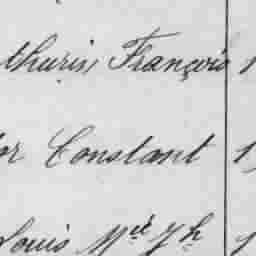 thurin François 1
or Constant 1
Louis M^el J^h 1